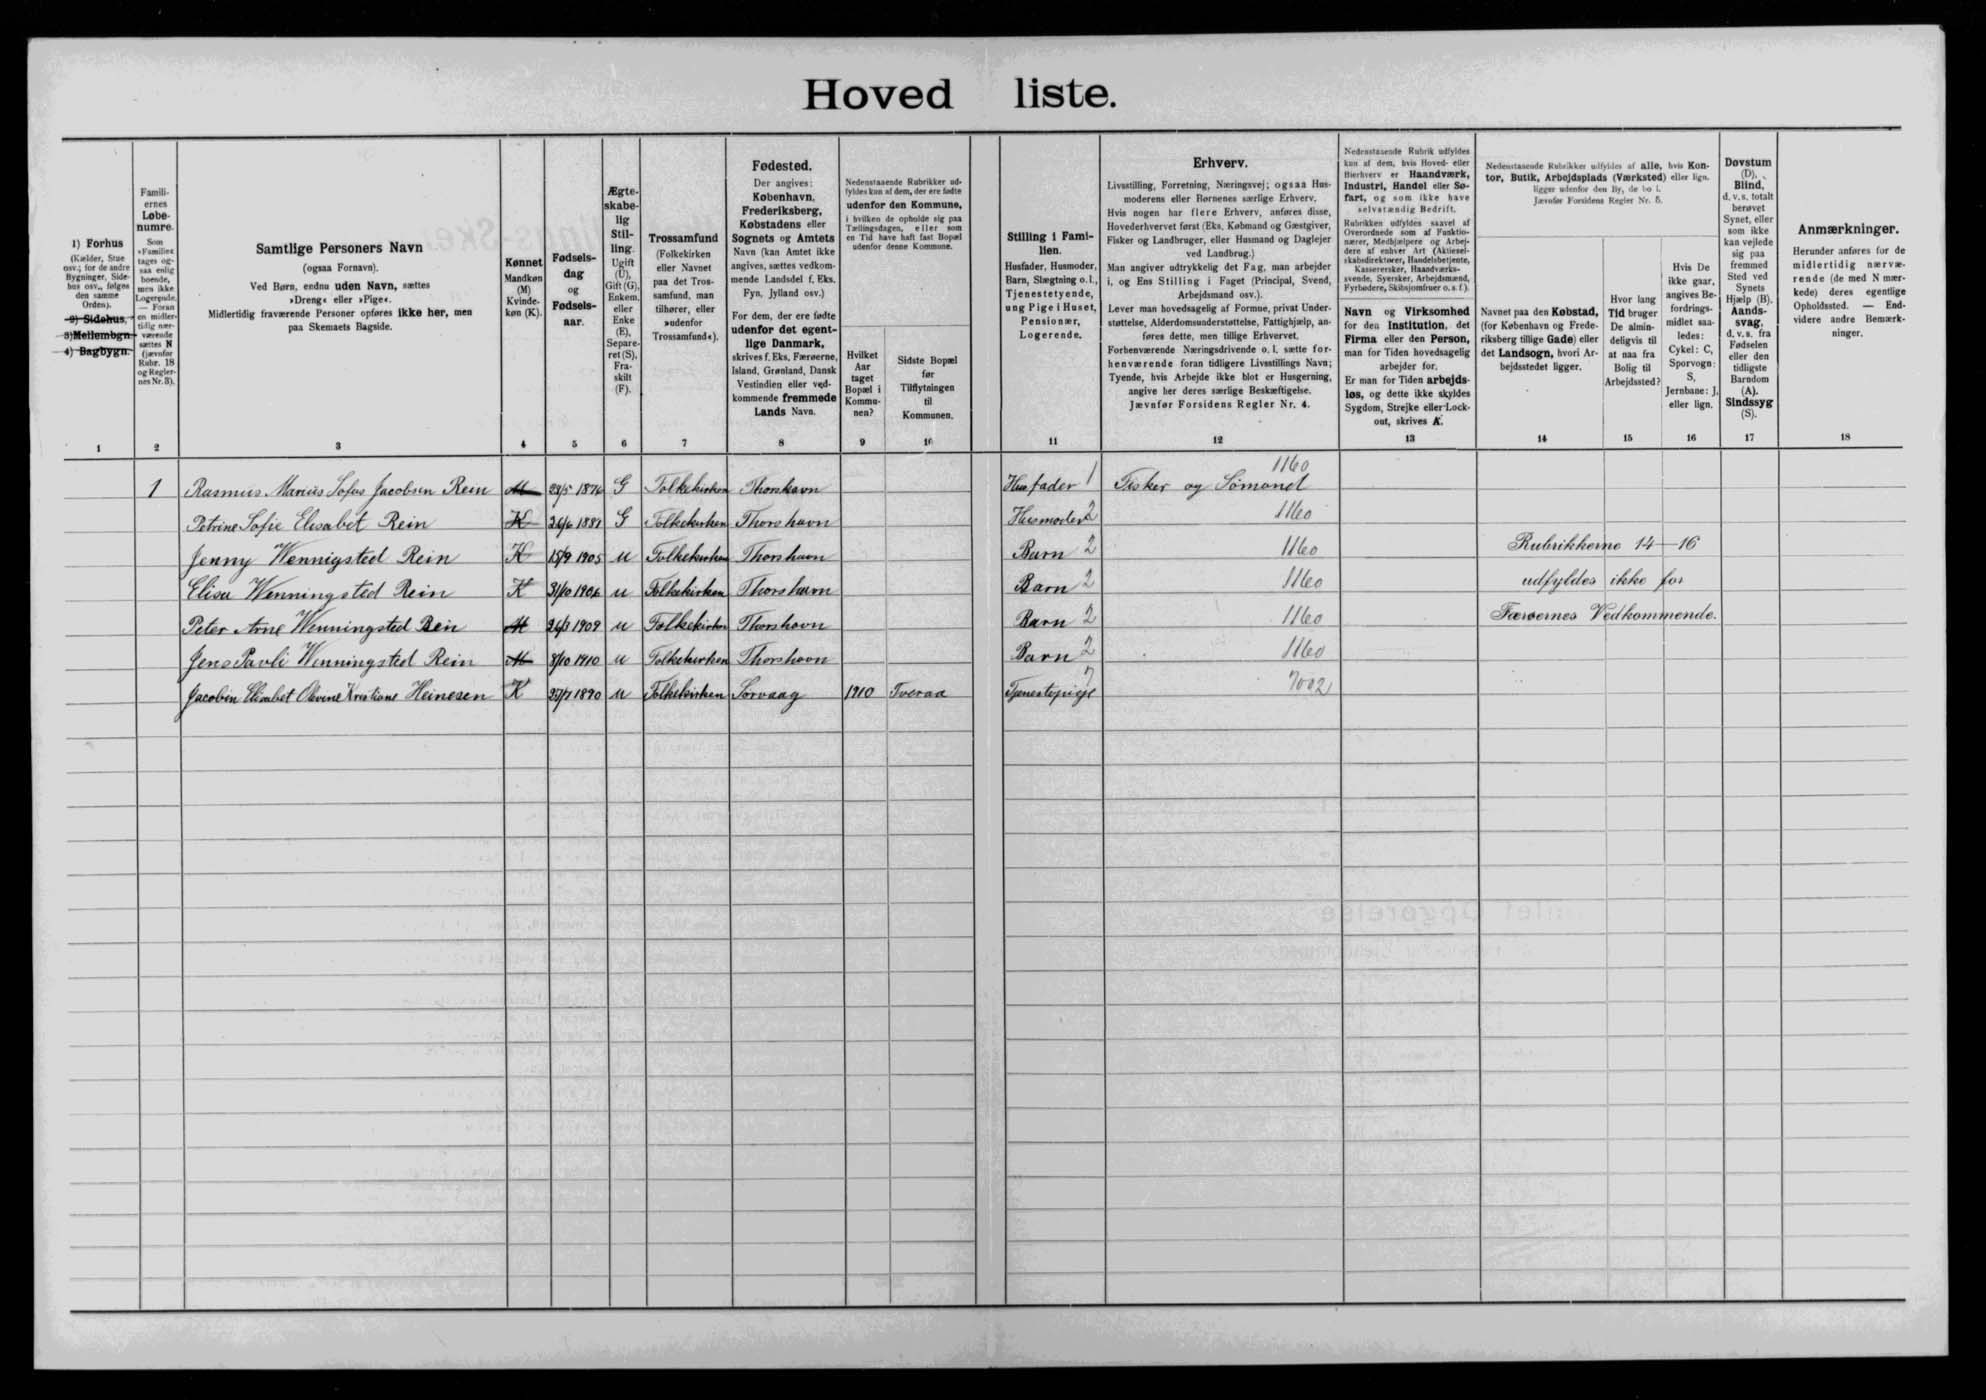 Hoved liste.
1) Forhus
(Kælder, Stue
osv.; for de andre
Bygninger, Side-
hus osv., følges
den samme
Orden).
2) Sidehus,
3) Mellembgn.
4) Bagbygn.
1
Famili-
ernes
Løbe-
numre.
Som
»Familie«
tages og-
saa enlig
boende,
men ikke
Logerende.
— Foran
en midler-
tidig nær-
værende
sættes N
(jævnfør
Rubr. 18
og Regler-
nes Nr. 3).
2
Samtlige Personers Navn
(ogsaa Fornavn).
Ved Børn, endnu uden Navn, sættes
»Dreng« eller »Pige«.
Midlertidig fraværende Personer opføres ikke her, men
paa Skemaets Bagside.
3
Kønnet
Mandkøn
(M)
Kvinde-
køn (K).
4
Fødsels-
dag
og
Fødsels-
aar.
5
Ægte-
skabe-
lig
Stil-
ling.
Ugift
(U),
Gift (G),
Enkem.
eller
Enke
(E),
Separe-
ret (S),
Fra-
skilt
(F).
6
Trossamfund
(Folkekirken
eller Navnet
paa det Tros-
samfund, man
tilhører, eller
»udenfor
Trossamfund«).
7
Fødested.
Der angives:
København,
Frederiksberg,
Købstadens eller
Sognets og Amtets
Navn (kan Amtet ikke
angives, sættes vedkom-
mende Landsdel f. Eks.
Fyn, Jylland osv.)
For dem, der ere fødte
udenfor det egent-
lige Danmark,
skrives f. Eks. Færøerne,
Island, Grønland, Dansk
Vestindien eller ved-
kommende fremmede
Lands Navn.
8
Nedenstaaende Rubrikker ud-
fyldes kun af dem, der ere fødte
udenfor den Kommune,
i hvilken de opholde sig paa
Tællingsdagen, eller som
en Tid have haft fast Bopæl
udenfor denne Kommune.
Hvilket
Aar
taget
Bopæl i
Kommu-
nen?
9
Sidste Bopæl
før
Tilflytningen
til
Kommunen.
10
Stilling i Fami-
lien.
Husfader, Husmoder,
Barn, Slægtning o. l.,
Tjenestetyende,
ung Pige i Huset,
Pensionær,
Logerende.
11
Erhverv.
Livsstilling, Forretning, Næringsvej; ogsaa Hus-
moderens eller Børnenes særlige Erhverv.
Hvis nogen har flere Erhverv, anføres disse,
Hovederhvervet først (Eks. Købmand og Gæstgiver,
Fisker og Landbruger, eller Husmand og Daglejer
ved Landbrug.)
Man angiver udtrykkelig det Fag, man arbejder
i, og Ens Stilling i Faget (Principal, Svend,
Arbejdsmand osv.).
Lever man hovedsagelig af Formue, privat Under-
støttelse, Alderdomsunderstøttelse, Fattighjælp, an-
føres dette, men tillige Erhvervet.
Forhenværende Næringsdrivende o. l. sætte for-
henværende foran tidligere Livsstillings Navn;
Tyende, hvis Arbejde ikke blot er Husgerning,
angive her deres særlige Beskæftigelse.
Jævnfør Forsidens Regler Nr. 4.
12
Nedenstaaende Rubrik udfyldes
kun af dem, hvis Hoved- eller
Bierhverv er Haandværk,
Industri, Handel eller Sø-
fart, og som ikke have
selvstændig Bedrift.
Rubrikken udfyldes saavel af
Overordnede som af Funktio-
nærer, Medhjælpere og Arbej-
dere af enhver Art (Aktiesel-
skabsdirektører, Handelsbetjente,
Kassererske, Haandværks-
svende, Syersker, Arbejdsmænd,
Fyrbødere, Skibsjomfruer o. s. f.).
Navn og Virksomhed
for den Institution, det
Firma eller den Person,
man for Tiden hovedsagelig
arbejder for.
Er man for Tiden arbejds-
løs, og dette ikke skyldes
Sygdom, Strejke eller Lock-
out, skrives A.
13
Nedenstaaende Rubrikker udfyldes af alle, hvis Kon-
tor, Butik, Arbejdsplads (Værksted) eller lign.
ligger udenfor den By, de bo i.
Jævnfør Forsidens Regler Nr. 5.
Navnet paa den Købstad,
(for København og Frede-
riksberg tillige Gade) eller
det Landsogn, hvori Ar-
bejdsstedet ligger.
14
Hvor lang
Tid bruger
De almin-
deligvis til
at naa fra
Bolig til
Arbejdssted?
15
Hvis De
ikke gaar,
angives Be-
fordrings-
midlet saa-
ledes:
Cykel: C,
Sporvogn:
S,
Jernbane: J,
eller lign.
16
Døvstum
(D),
Blind,
d. v. s. totalt
berøvet
Synet, eller
som ikke
kan vejlede
sig paa
fremmed
Sted ved
Synets
Hjælp (B).
Aands-
svag,
d. v. s. fra
Fødselen
eller den
tidligste
Barndom
(A).
Sindssyg
(S).
17
Anmærkninger.
Herunder anføres for de
midlertidig nærvæ-
rende (de med N mær-
kede) deres egentlige
Opholdssted. — End-
videre andre Bemærk-
ninger.
18
1 Rasmus Marius Sofus Jacobsen Rein M 28/5 1876 G Folkekirken Thorshavn Husfader 1 Fisker og Sømand 1160
Petrine Sofie Elisabet Rein K G Folkekirken Thorshavn Husmoder 2 1160
Jenny Wennigsted Rein K 15/9 1905 U Folkekirken Thorshavn Barn 2 1160 Rubrikkerne 14—16
Elisa Wenningsted Rein K 31/10 1906 U Folkekirken Thorshavn Barn 2 1160 udfyldes ikke for
Peter Arne Wenningsted Rein M 26/3 1909 U Folkekirken Thorshavn Barn 2 1160 Færøernes Vedkommende.
Jens Pavli Wenningsted Rein M 8/10 1910 U Folkekirken Thorshavn Barn 2 1160
Jacobine Elisabet Olevine Kristiane Heinesen K 25/7 1890 U Folkekirken Sorvaag 1910 Tveraa Tjenestepige 7 7002